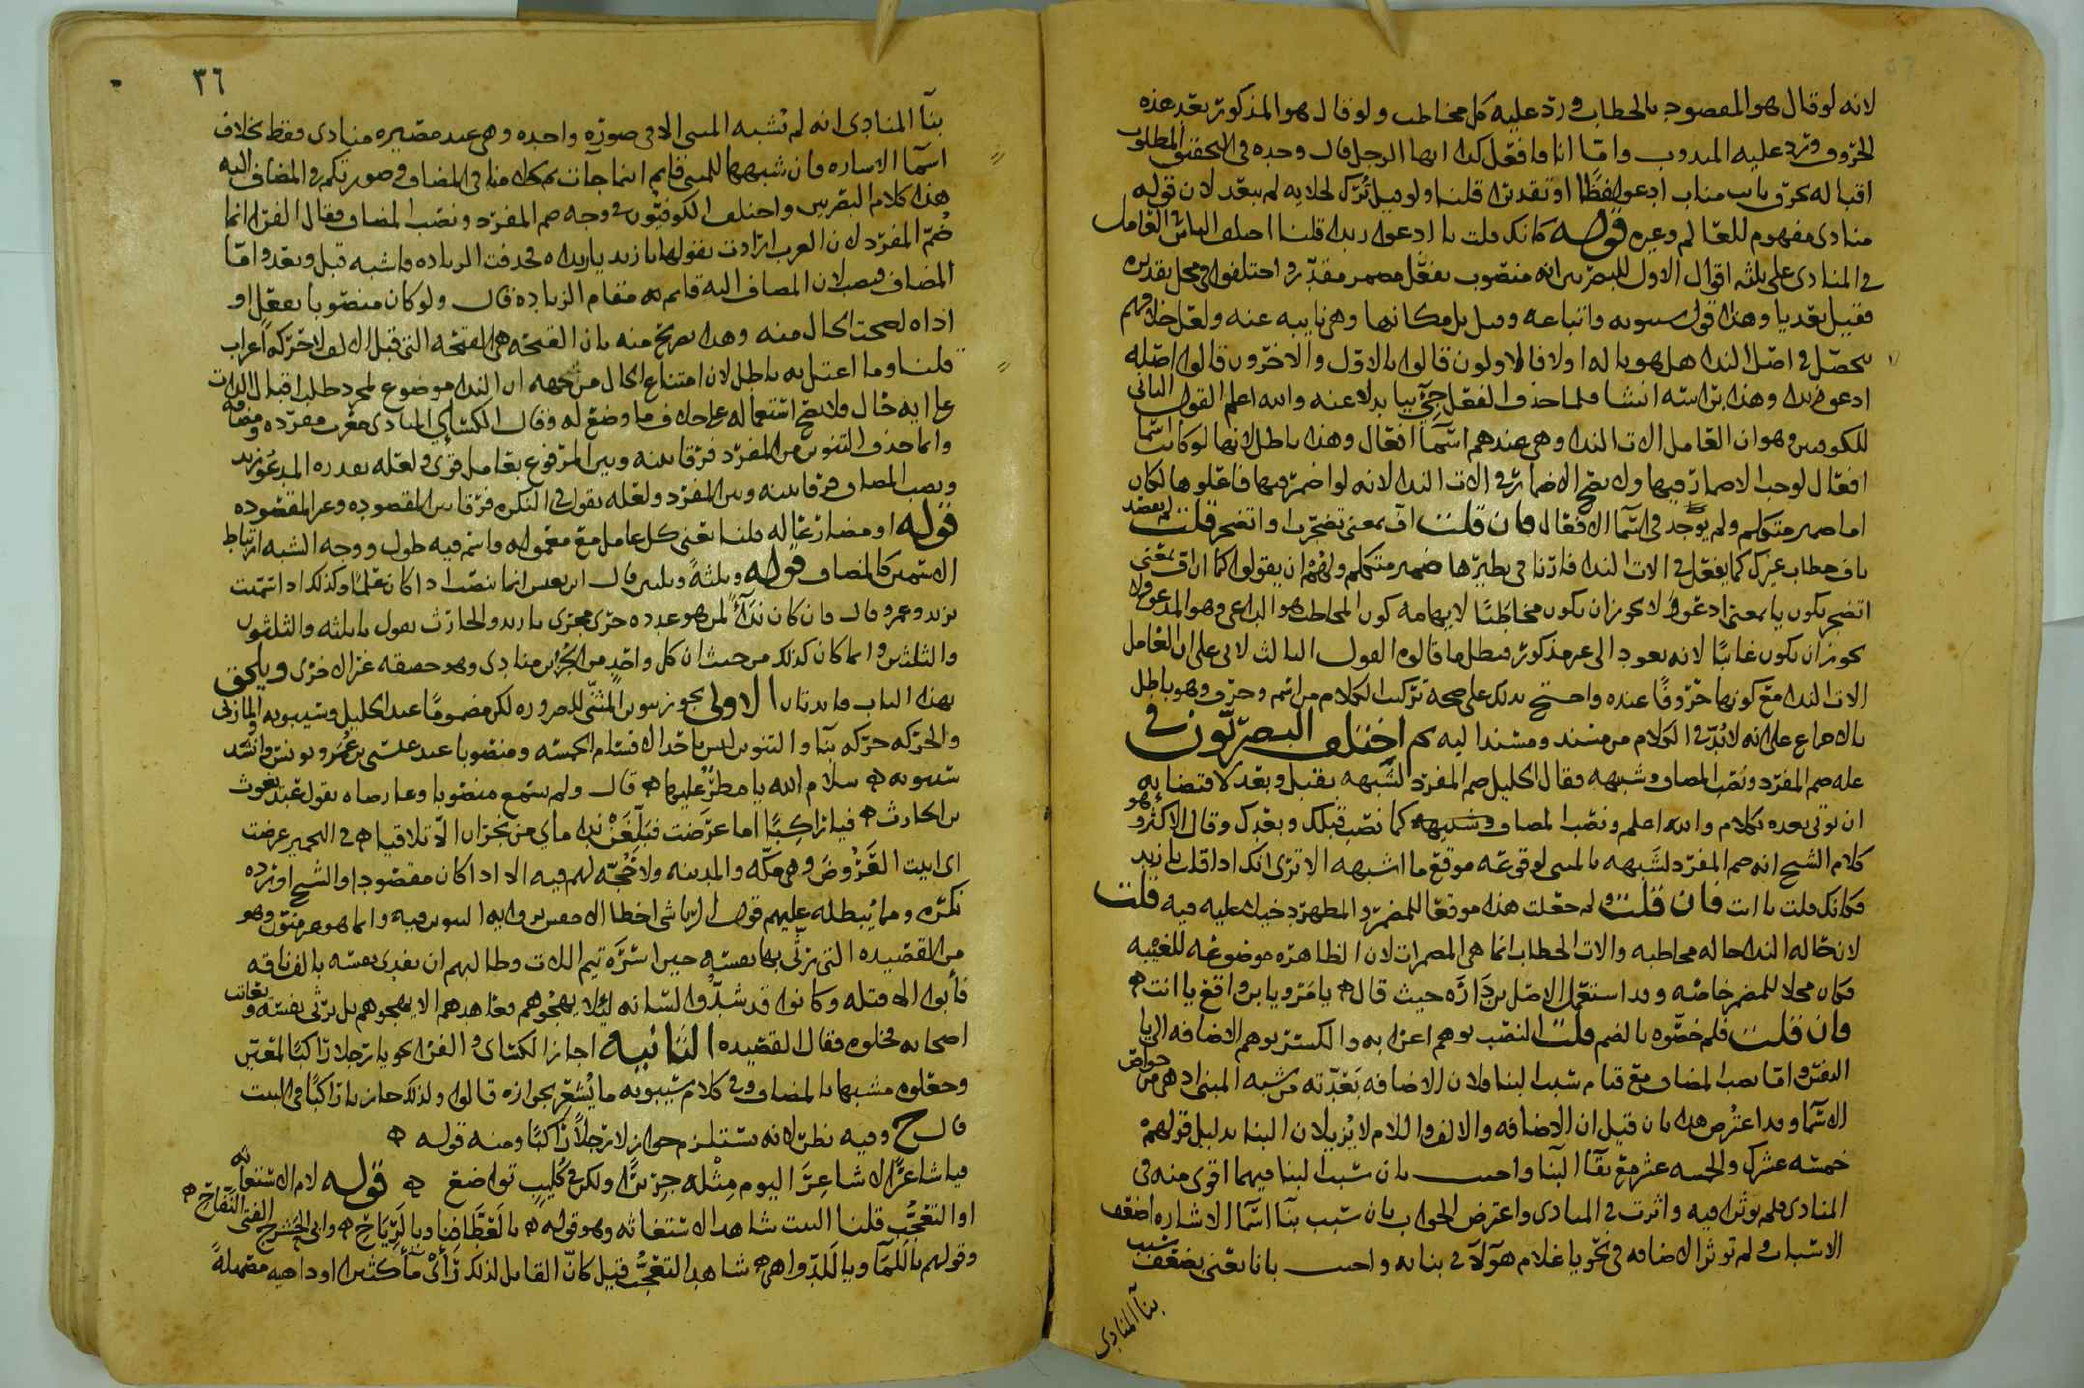 لانه لو قال هو المقصود بالخطاب ورد عليه كل مخاطب ولو قال هو المذكور بعد هذه
الحروف ورد عليه المندوب واما انا فافعل كذا ايها الرجل قال وحده في التحقيق المطلوب
اقباله بحرف نايب مناب ادعو لفظا او تقديرا قلنا ولو قيل تُرك لجلائه لم يبعد لان قوله
منادى مفهوم للعالم وغيره قوله كانك قلت يا ادعوا زيدا قلنا اختلف الناس في العامل
في المنادى على ثلثه اقوال الاول للبصريين انه منصوب بفعل مضمر مقدر واختلفوا في محل تقديره
فقيل بعد يا وهذا قول سيبويه واتباعه وقيل بل مكانها وهي نايبه عنه ولعل خلافهم
يحصل في اصل الندا هل هو يا له اولا فالاولون قالوا بالاول والاخرون قالوا اصله
ادعو زيدا وهذه انشا فلما حذف الفعل جيء بيا بدلا عنه والله اعلم القول الثاني
للكوفيين وهو ان العامل الات الندا وهي عندهم اسما افعال وهذا باطل لانها لو كانت اسما
افعال لوجب الاضمار فيها ولا يصح الاضمار في الات الندا لانه لو اضمر فيها فاعلوها لكان
اما ضمير متكلم ولم يوجد في اسما الافعال فان قلت اف بمعنى تضجرت او اتضجر قلت لم يقصد
باف خطاب غيرك كما يفعل في الات الندا فارنا في نظيرها ضمير متكلم ولهم ان يقولوا كما ان اف بمعنى
اتضجر يكون يا بمعنى ادعو ولا يجوز ان يكون مخاطبا لايهامه كون المخاطب هو الداعي وهو المدعو ولا
يجوز ان يكون غائبا لانه يعود الى غير مذكور فبطل ما قالوه القول الثالث لابي علي ان العامل
الات الندا مع كونها حروفا عنده واحتج بذلك على صحة تركيب الكلام من اسم وحرف وهو باطل
بالاجماع على انه لا بد في الكلام من مسند ومسند اليه ثم اختلف البصريون في
عله ضم المفرد ونصب المضاف وشبهه فقال الخليل ضم المفرد لشبهه بقبل وبعد لاقتضايه
ان يوتى بعده بكلام والله اعلم ونصب المضاف وشبهه كما نصب قبلك وبعدك وقال الاكثر وهو
كلام الشيخ انه ضم المفرد لشبهه بالمبني لوقوعه موقع ما اشبهه الا ترى انك اذا قلت يا زيد
فكانك قلت يا انت فان قلت ولم جعلت هذا موقعا للمضمر والمظهر دخيلا عليه فيه قلت
لان حاله الندا حاله مخاطبه والات الخطاب انما هي المضمرات لان الظاهره موضوعه للغيبه
فكان محلا للمضمر خاصه وقد استعمل الاصل بن داره حيث قال يا مر ويا بن واقع يا انت
فان قلت فلم خصوه بالضم قلت النصب يوهم اعرابه والكسر يوهم الاضافه الى يا
النفس واما نصب المضاف مع قيام سبب البنا فلان الاضافه بعدته من شبه المبني اذ هي من خواص
الاسما وقد اعترض هذا بان قيل ان الاضافه والالف واللام لا يزيلان البنا بدليل قولهم
خمسه عشرك والخمسه عشر مع بقا البنا واجيب بان سبب البنا فيهما اقوى منه في
المنادى فلم يوثرا فيه واثرت في المنادى واعترض الجواب بان سبب بنا اسما الاشاره اضعف
الاسباب ولم توثر الاضافه في نحو يا غلام هولا في بنايه واجيب بانا نعني بضعف سبب
بنا المنادى
٣٦
بنا المنادى انه لم يشبه المبني الا في صوره واحده وهي عند مصيره منادى فقط بخلاف
اسما الاشاره فان شبهها للمبني قايم اينما جآت يمكلك منا في المضاف وصورتكم في المضاف اليه
هذا كلام البصريين واختلف الكوفيون في وجه ضم المفرد ونصب المضاف فقال الفرا انما
ضُم المفرد لان العرب ارادت بقولها يا زيد يا زيداه فحذفت الزياده فاشبه قبل وبعد واما
المضاف فنصب لان المضاف اليه قايم مقام الزياده قال ولو كان منصوبا بفعل او
اداه لصحت الحال منه وهذا تصريح منه بان الفتحه هي الفتحه التي قبل الالف لا حركه اعراب
قلنا وما اعتل به باطل لان امتناع الحال من جهه ان الندا موضوع لمجرد طلب اقبال الذات
على ايه حال فلا يصح استعماله على خلاف ما وضع له وقال الكسائي المنادى معرب مفرده ومضافه
وانما حذف التنوين من المفرد فرقا بينه وبين المرفوع بعامل قوي ولعله يقدره المدعو زيد
ونصب المضاف فرقا بينه وبين المفرد ولعله يقول في النكره فرقا بين المقصوده وغير المقصوده
قوله او مضارعا له قلنا يعني كل عامل مع معموله فاسم فيه طول ووجه الشبه ارتباط
الاسمين كالمضاف قوله وثلثةً وثلثين قال ابن يعيش انما ينصب اذا كان علما وكذلك اذا سميت
بزيد وعمرو قال فان كان نداءً لمن هو عدده جرى مجرى يا زيد والحارث تقول يا ثلثه والثلثون
والثلثين وانما كان كذلك من حيث ان كل واحد من الجزاين منادى وهو حصته غير الاخرى ويلحق
بهذا الباب فايدتان الاولى يجوز تنوين المبني للضروره لكن مضموما عند الخليل وسيبويه والمازني
والحركه حركه بنا والتنوين ليس باحد الاقسام الخمسه ومنصوبا عند عيسى بن عمر ويونس وانشد
سيبويه سلام الله يا مطر عليها قال ولم يسمع منصوبا وعارضاه بقول عبد يغوث
بن الحارث فيا راكبا اما عرضت فبلغن نداماي من نجران الا تلاقيا في الصحيح عرضت
اي اتيت العروض وهي مكه والمدينه ولا حجه لهم فيه الا اذا كان مقصودا والشيخ اورده
نكره ومما يبطله عليهم قول الرياشي اخطا الاخفش بروايه التنوين فيه وانما هو غير منون وهو
من القصيده التي رثى بها نفسه حين اسره تيم اللات وطالبهم ان يفدى نفسه بالف ناقه
فأبوا الا قتله وكانوا قد شدوا لسانه ليلا يهجوهم فعاهدهم الا يهجوهم بل يرثي نفسه ويعاتب
اصحابه فخلوه فقال القصيده الثانيه اجاز الكسائي والفرا نحو يا رجلا راكبا لمعين
وجعلوه مشبها بالمضاف وفي كلام سيبويه ما يُشعر بجوازه قالوا ولذلك جاز يا راكبا في البيت
قال ح وفيه نظر لانه يستلزم جواز لا رجلا راكبا ومنه قوله
فيا شاعرا لا شاعر اليوم مثله جرير ولكن في كليب تواضع قوله لام الاستغاثه
او التعجب قلنا البيت شاهد الاستغاثه وهو قوله يا لعطافنا ويا لرياح وابي الحشرج الفتى النفاح
وقولهم يا للما ويا للدواهي شاهد التعجب قيل كان القايل لذلك رأى مأ كثيرا او داهيه مهولة